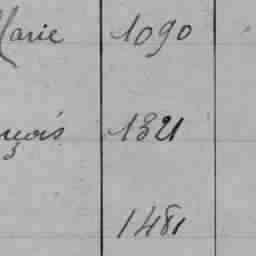 Marie 1090
çois 1321
1481